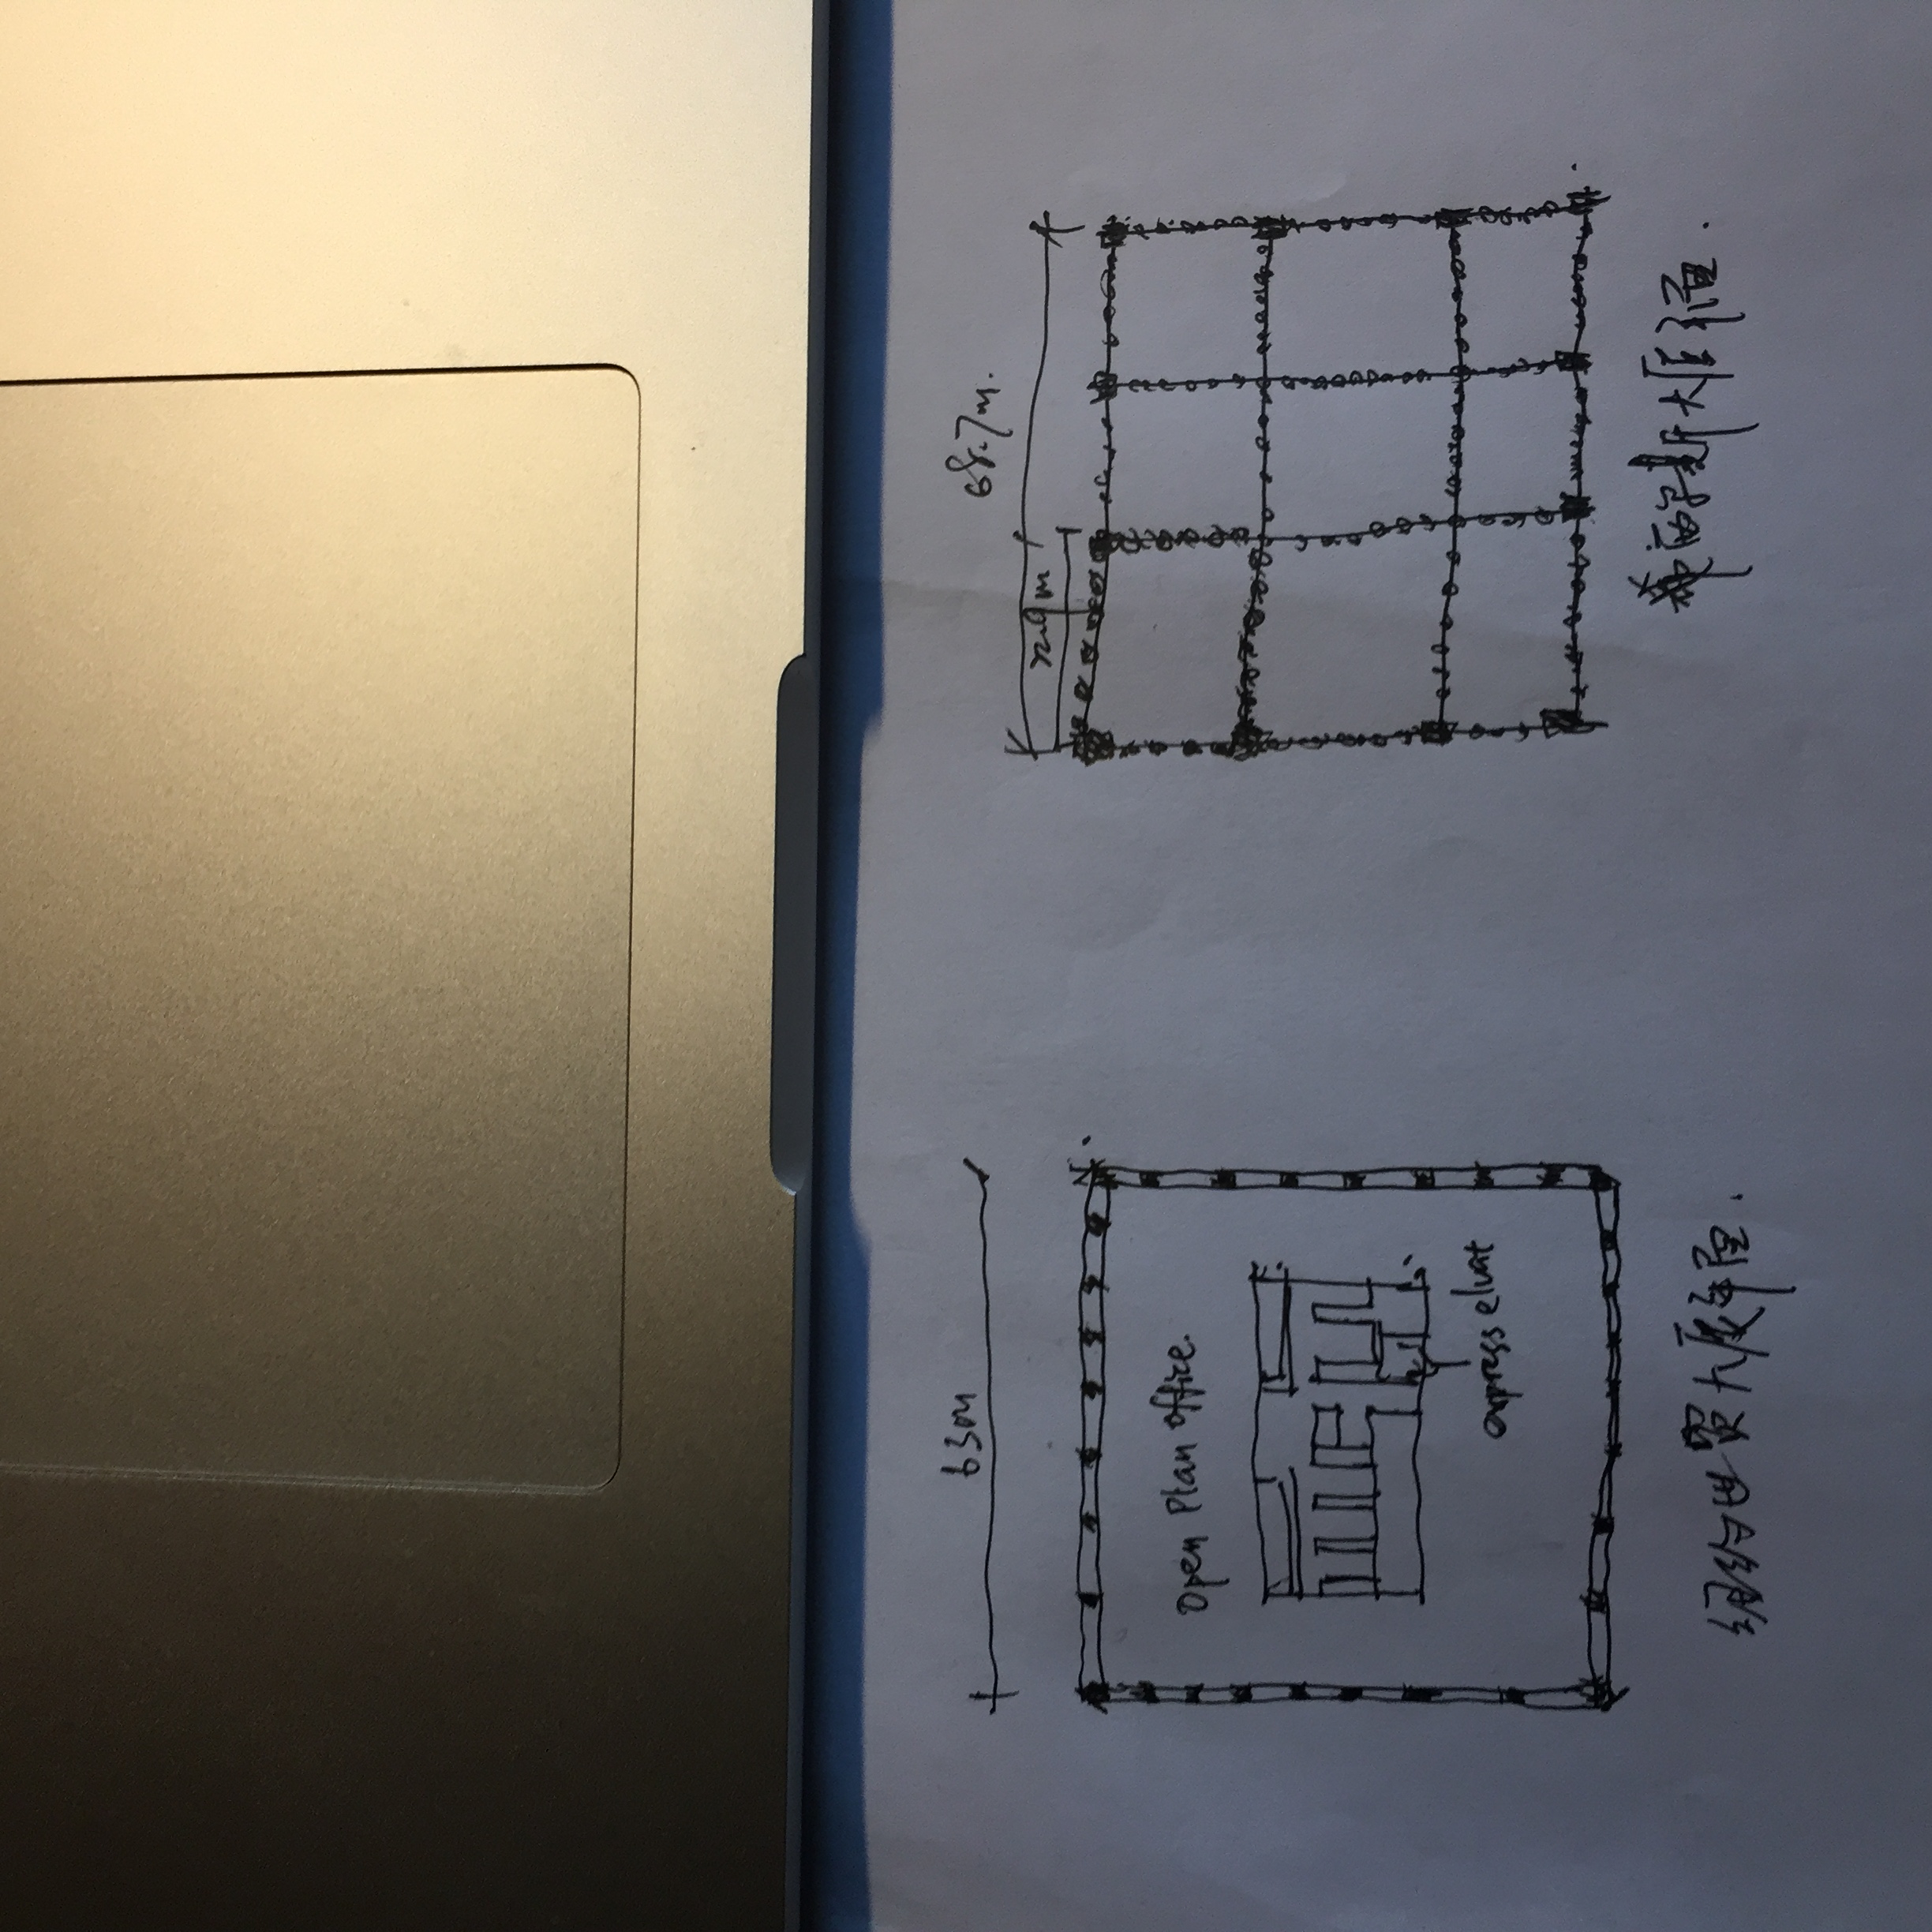 63m
Open Plan office.
express elvat
纽约世贸大厦平面.
68.7m.
22.9m
西尔斯大厦平面.